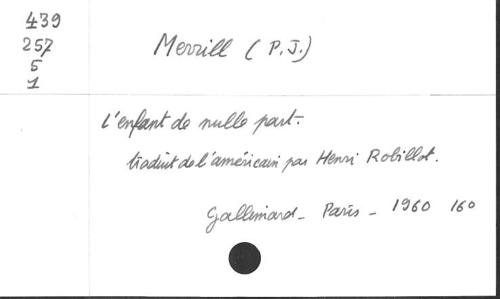 439
257
5
1
Merrill (P.J.)
L'enfant de nulle part.
traduit de l'américain par Henri Robillot.
Gallimard - Paris - 1960 160